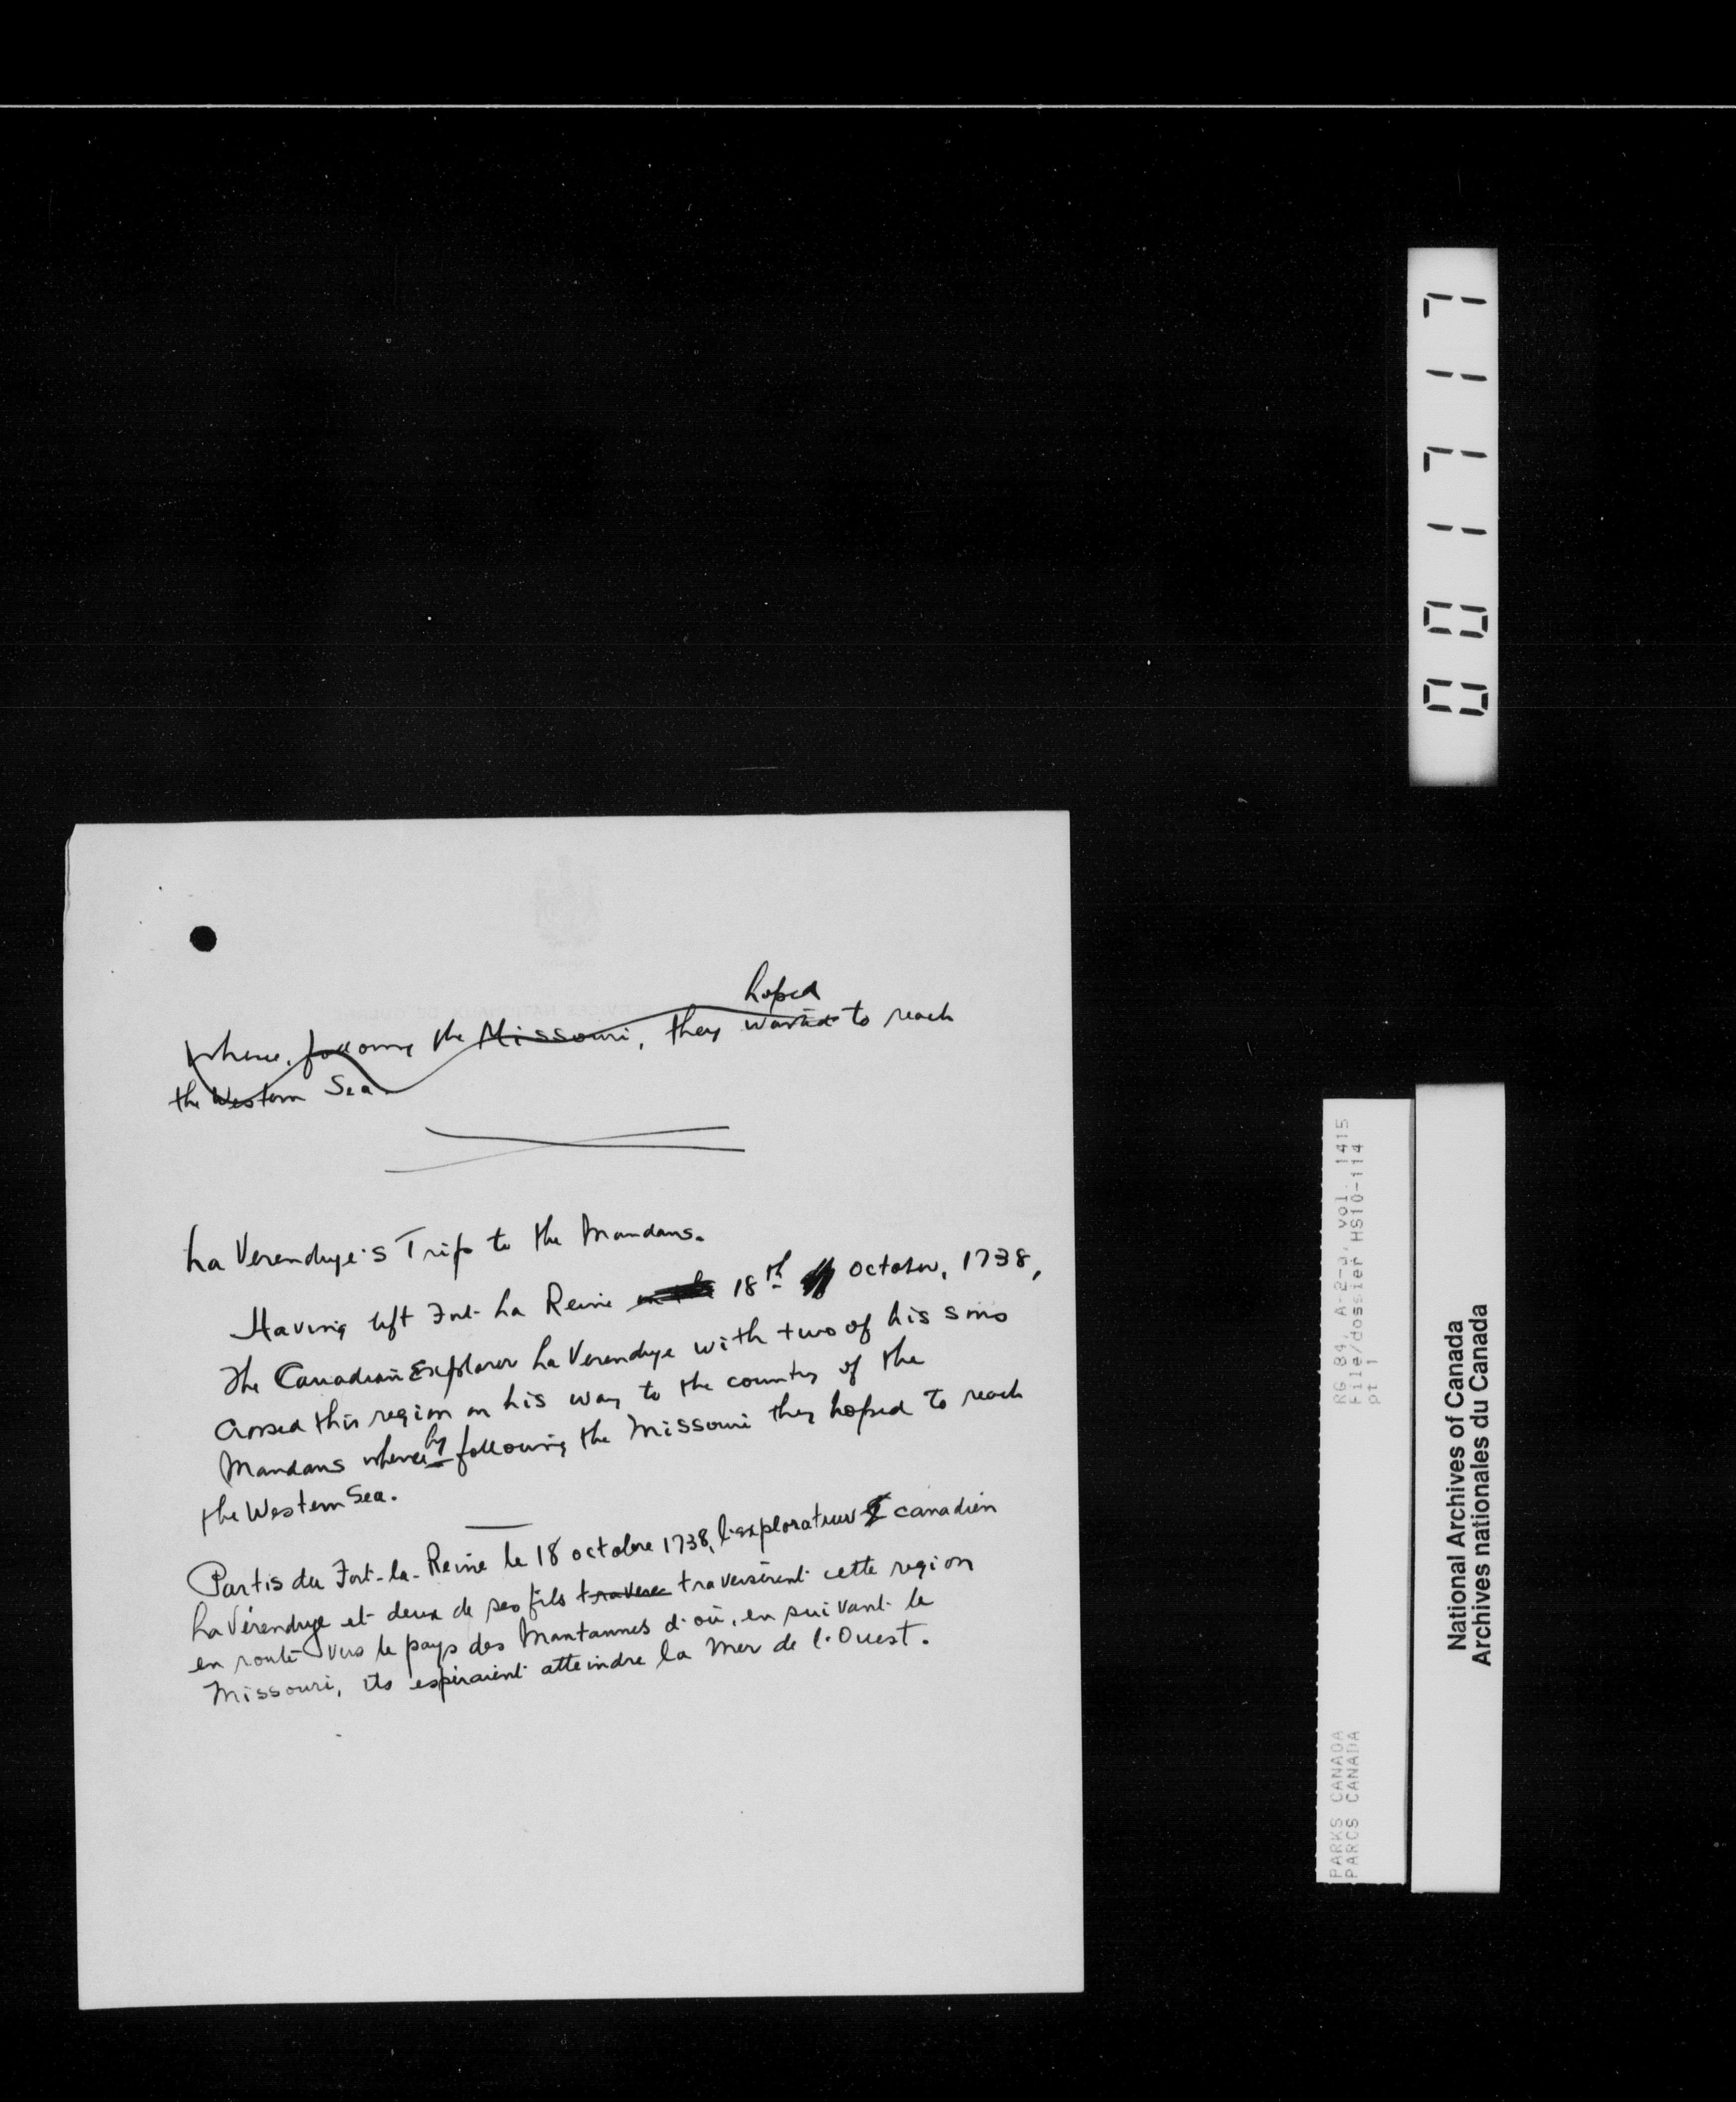 hoped
Whence, following the Missouri, they wanted to reach
the Western Sea.
La Verendrye's Trip to the Mandans.
Having left Fort La Reine 18th October, 1738,
The Canadian Explorer La Verendrye with two of his sons
crossed this region on his way to the country of the
Mandans whence by following the Missouri they hoped to reach
the Western Sea.
Partis du Fort-la-Reine le 18 octobre 1738, l'explorateur canadien
La Vérendrye et deux de ses fils traverse traversèrent cette region
en route vers le pays des Mantannes d'où, en suivant le
Missouri, ils espéraient atteindre la Mer de l'Ouest.
001717
RG 84, A-2-a, vol. 1415
File/dossier HS10-114
pt 1
PARKS CANADA
PARCS CANADA
National Archives of Canada
Archives nationales du Canada